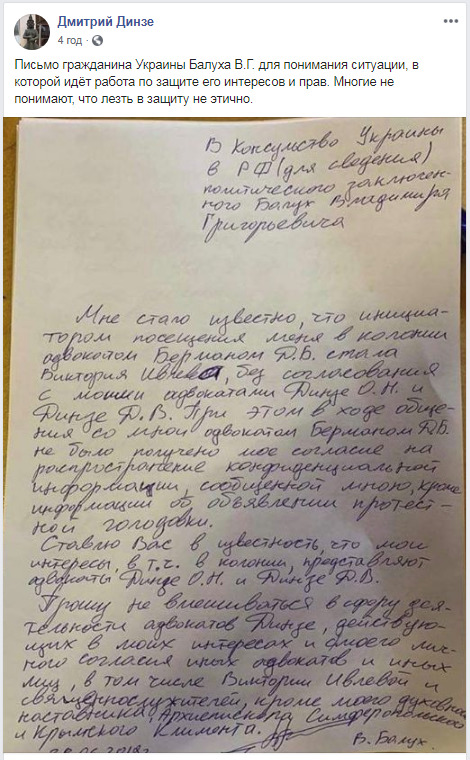 Дмитрий Динзе
4 год ·
Письмо гражданина Украины Балуха В.Г. для понимания ситуации, в
которой идёт работа по защите его интересов и прав. Многие не
понимают, что лезть в защиту не этично.
В Консульство Украины
в РФ (для сведения)
политического заключен-
ного Балух Владимира
Григорьевича
Мне стало известно, что инициа-
тором посещения меня в колонии
адвокатом Берманом Д.Б. стала
Виктория Ивлева, без согласования
с моими адвокатами Динзе О.Н. и
Динзе Д.В. При этом в ходе обще-
ния со мной адвокатом Берманом Д.Б.
не было получено мое согласие на
распространение конфиденциальной
информации, сообщенной мною, кроме
информации об объявлении протест-
ной голодовки.
Ставлю Вас в известность, что мои
интересы, в т.ч. в колонии, представляют
адвокаты Динзе О.Н. и Динзе Д.В.
Прошу не вмешиваться в сферу дея-
тельности адвокатов Динзе, действую-
щих в моих интересах и с моего лич-
ного согласия иных адвокатов и иных
лиц, в том числе Виктории Ивлевой и
священнослужителей, кроме моего духовного
наставника Архиепископа Симферопольского
и Крымского Климента.
В. Балух